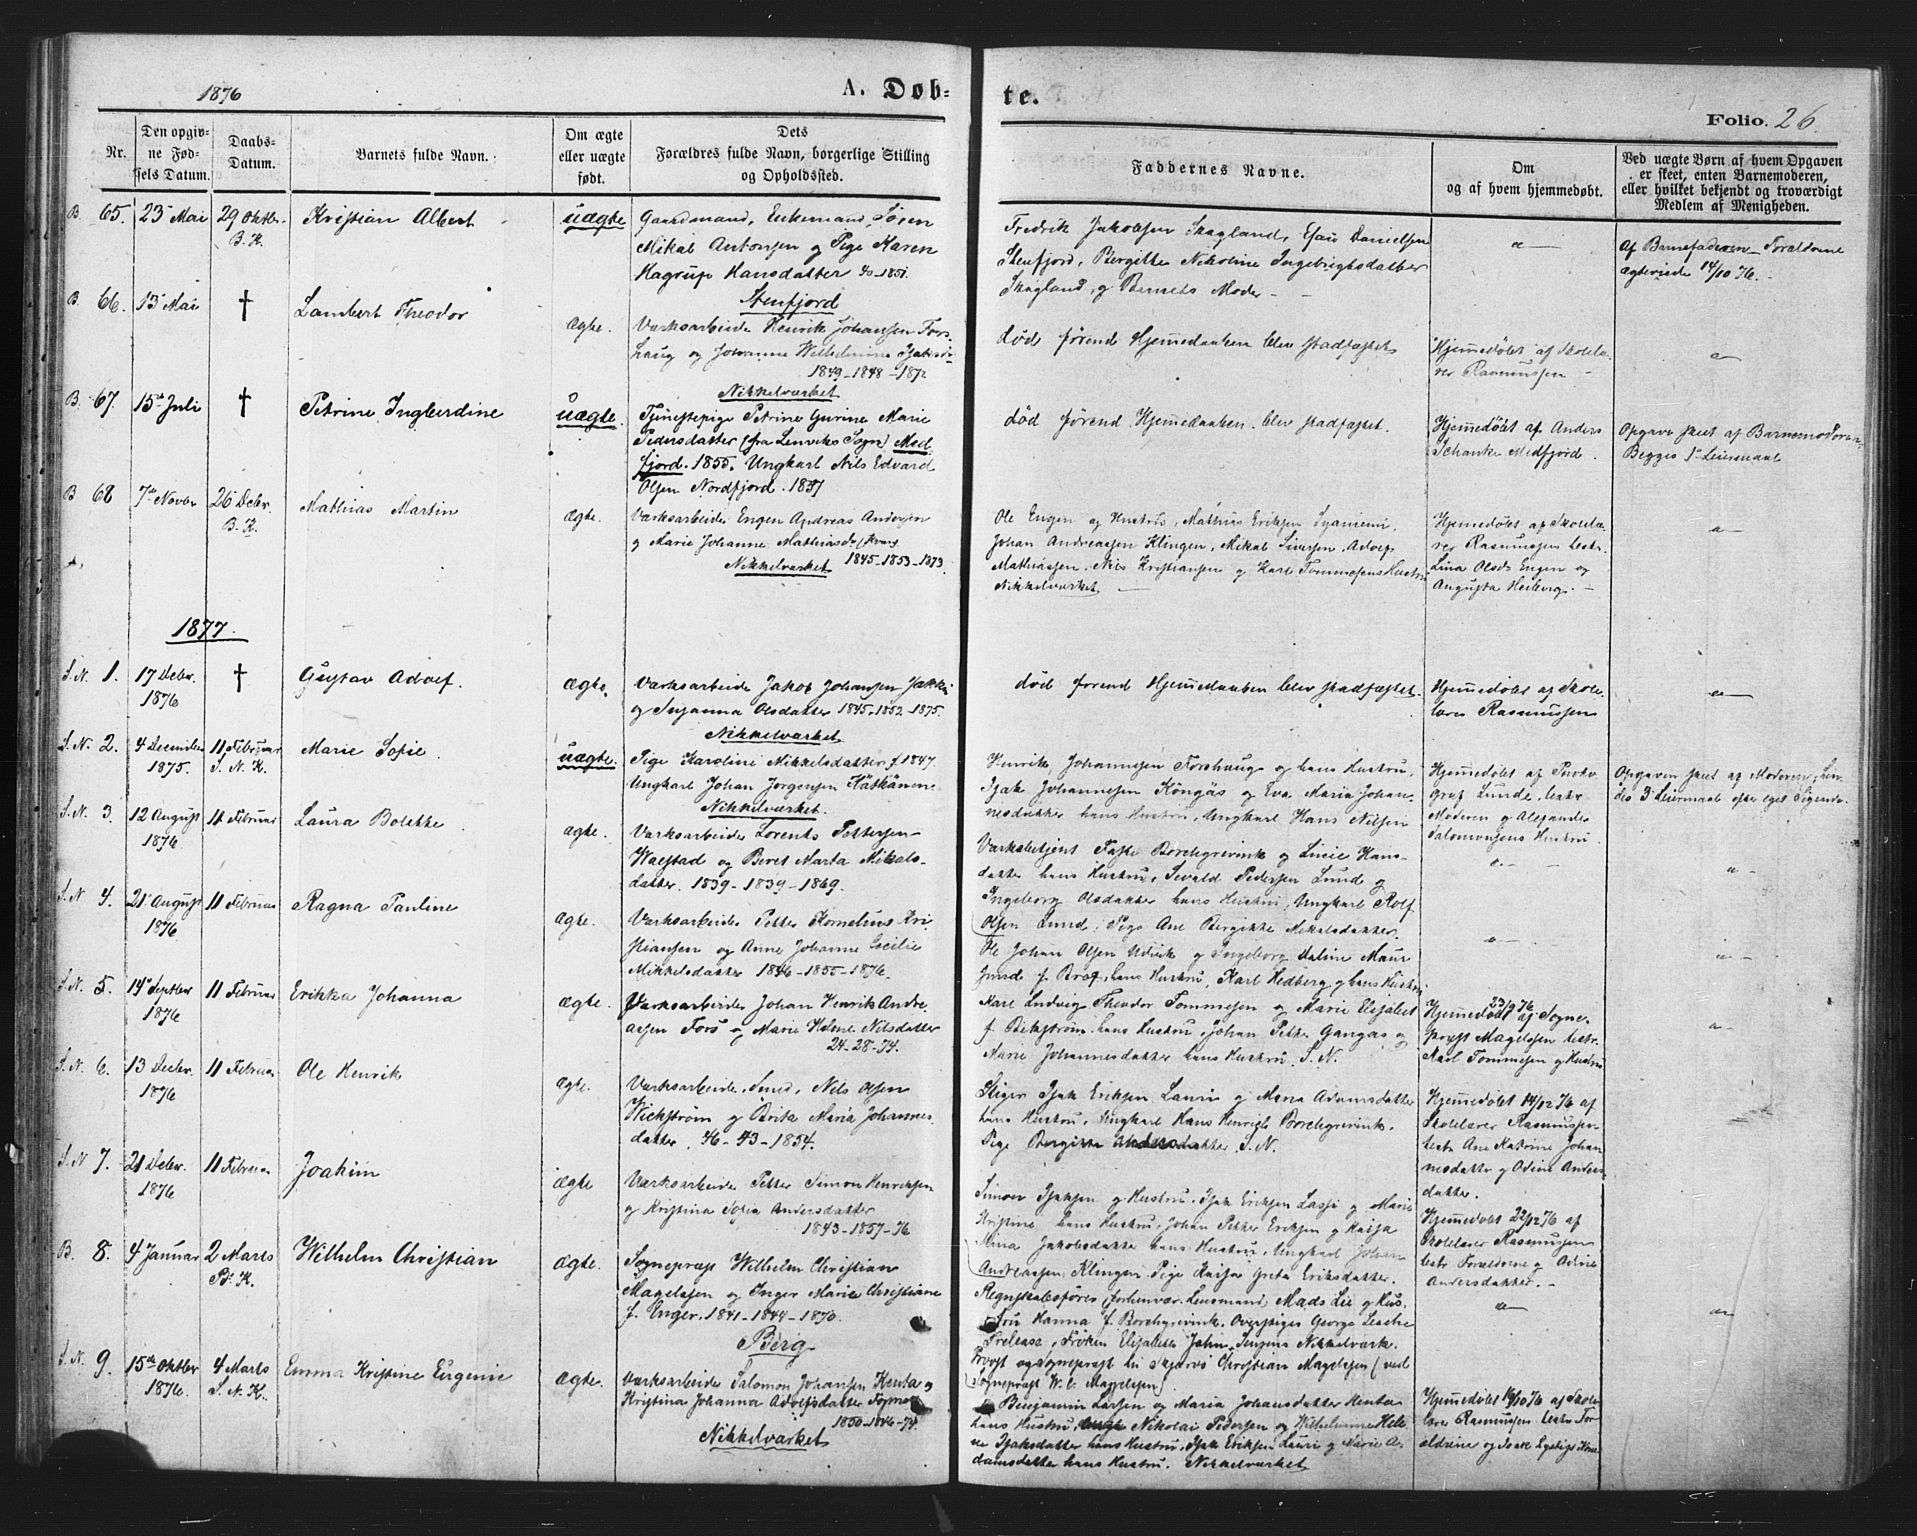 1876
A. Døb-
te.
Folio. 26.
Nr.
Den opgiv-
ne Fød-
sels Datum.
Daabs-
Datum.
Barnets fulde Navn.
Om ægte
eller uægte
født.
Dets
Forældres fulde Navn, borgerlige Stilling
og Opholdssted.
Faddernes Navne.
Om
og af hvem hjemmedøbt.
Ved uægte Børn af hvem Opgaven
er skeet, enten Barnemoderen,
eller hvilket bekjendt og troværdigt
Medlem af Menigheden.
B. 65. 23 Mai
29 Oktbr.
B. K.
Kristian Albert
uægte
Gaardmand, Enkemand Søren
Mikal Antonsen og Pige Karen
Hagrup Hansdatter 1851.
Stenfjord
Fredrik Jakobsen Skagland, Esau Danielsen
Stenfjord, Bergitte Nikoline Ingebrigtsdatter
Skagland, og Barnets Moder -
Af Barnefaderen Forældrene
ægteviede 14/10 76.
B. 66. 13 Mai
†
Lambert Theodor
ægte.
Værksarbeider Henrik Johansen Fors-
haug og Johanne Wilhelmine Isaksd.
1849-1848-1872
Nikkelværket
død førend Hjemmedaaben blev stadfæstet
Hjemmedøbt af Skolelæ-
rer Rasmussen
B. 67. 15de Juli
†
Petrine Ingberdine
uægte.
Tjenestepige Petrine Gurine Marie
Pedersdatter (fra Lenviks Sogn) Med-
fjord. 1855. Ungkarl Nils Edvard
Olsen Nordfjord. 1837
død førend Hjemmedaaben blev stadfæstet.
Hjemmedøbt af Anders
Schanke Medfjord.
Opgave skeet af Barnemoderen
Begges 1ste Leiermaal
B 68 7de Novbr
26 Decbr.
B. K.
Mathias Martin
ægte.
Værksarbeider Engen Andreas Andersen
og Marie Johanne Mathiasd.
1845-1853-1873.
Nikkelværket
Ole Engen og Hustru, Mathias Eriksen
Johan Andreassen Klingen, Mikal Siversen, Adolf
Mathiassen, Nils Kristiansen og Karl Tommesens Hustru
Nikkelværket
Hjemmedøbt af Skolelæ-
rer Rasmussen testr.
Lina Olsdr. Engen og
Augusta Heiberg. -
1877.
S. N. 1. 17 Decbr.
1876
†
Gustav Adolf.
ægte.
Værksarbeider Jakob Johansen
og Susanna Olsdatter 1845-1852-1875.
Nikkelværket
død førend Hjemmedaaben blev stadfæstet.
Hjemmedøbt af Skole-
lærer Rasmussen
S. N. 2. 4 December
1875.
11 Februar
S. N. K.
Marie Sofie
uægte.
Pige Karoline Mikkelsdatter f 1847.
Ungkarl Johan Jørgensen
Nikkelværket.
Henrik Johannesen Forshaug og hans Hustru,
Isak Johannesen Köngäs og Eva Maria Johan-
nesdatter hans Hustru, Ungkarl Hans Nilsen
Hjemmedøbt af
Lunde, testr
Moderen og Alexander
Salomonsens Hustru
Opgaven skeet af Moderen,
3die Leiermaal efter eget Sigende.
S. N. 3. 12 August
1876.
11 Februar
Laura Bolette
ægte.
Værksarbeider Lorents Pettersen
Walstad og Beret Marta Mikkels-
datter. 1839-1839-1869.
Værksbetjent Faste Borchgrevink og Lucie Hans-
datter hans Hustru, Sevald Pedersen Lund og
Ingeborg Olsdatter hans Hustru, Ungkarl Rolf
Olsen Lund, Pige Ane Bergitte Mikalsdatter.
S. N 4. 21 August
1876
11 Februar
Ragna Pauline
ægte.
Værksarbeider Petter Kornelius Kri-
stiansen og Anne Johanne Cecilie
Mikkelsdatter 1846-1855-1876.
Ole Johan Olsen og Ingeborg
hans Hustru, Karl Hedberg og hans Hustru
S. N. 5. 19de Septbr
1876
11 Februar
Erikka Johanna
ægte.
Værksarbeider Johan Henrik Andre-
assen Fors og Marie Helene Nilsdatter
24-28-74.
Karl Ludvig Theodor Tommesen og Marie Elisabet
f. Bekstrøm hans Hustru, Johan Petter Gangås og
Marie Johannesdatter hans Hustru. S. N.
Hjemmedøbt 23/9 76 af Sogne-
præst Magelsen testr.
Karl Tommesen og Hustru
S. N. 6. 13 Decbr.
1876
11 Februar
Ole Henrik
ægte.
Værksarbeider, Smed, Nils Olsen
Wickstrøm og Brita Maria Johannes-
datter. 46-43-1854.
Stiger Isak Eriksen Lauri og Maria Adamsdatter
hans Hustru, Ungkarl Hans Henrik Borchgrevink,
Pige Bergitte Andersdatter, S. N.
Hjemmedøbt 14/12 76 af
Skolelærer Rasmussen
testr. Ane Katrine Johan-
nesdatter og Odine Anders-
datter.
S. N 7. 21 Decbr.
1876
11 Februar
Joakim
ægte
Værksarbeider Petter Simon Henriksen
og Kristina Sofia Andersdatter
1843-1857-76
Simon Isaksen og Hustru, Isak Eriksen Lassi og Maria
Kristine hans Hustru, Johan Petter Eriksen og Kaisa
Mina Jakobsdatter hans Hustru, Ungkarl Johan
Andreassen Klingen, Pige Kaisa Greta Eriksdatter.
Hjemmedøbt 22/12 76 af
Skolelærer Rasmussen
testr Forældrene og Odine
Andersdatter. -
B. 8. 4 Januar
2 Marts
B. K.
Wilhelm Christian
ægte.
Sognepræst Wilhelm Christian
Magelsen og Inger Marie Christiane
f. Enger. 1841-1844-1870.
Berg
Regnskabsfører, forhenvær. Lensmand, Mads Lie og Hus-
tru Hanna f. Borchgrevink, Overstiger George Leache
Prelease, Frøken Elisabeth Jahn, Nikkelværk.
Provst og Sognepræst til Skjervø Christian Magelsen (ved
Sognepræst W. C. Magelsen).
S. N. 9. 15de Oktbr
1876.
4 Marts
S. N. K.
Emma Kristine Eugenie
ægte.
Værksarbeider Salomon Johansen Henta og
Kristina Johanna Adolfsdatter
1850-1846-74.
Nikkelværket
Benjamin Larsen og Maria Johansdatter Henta
hans Hustru, Nikolai Pedersen og Wilhelmine Hele-
ne Isaksdatter hans Hustru, Isak Eriksen Lauri og Marie A-
damsdatter hans Hustru. Nikkelværket
Hjemmedøbt 16/10 76 af Skole-
lærer Rasmussen testr For-
ældrene og Isak